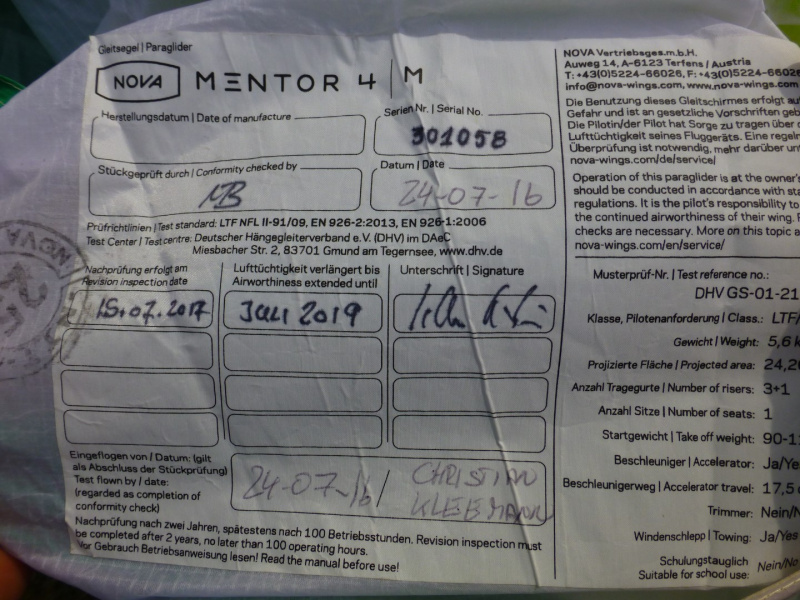 Gleitsegel | Paraglider
NOVA MENTOR 4 | M
Herstellungsdatum | Date of manufacture
Serien Nr. | Serial No.
301058
Stückgeprüft durch | Conformity checked by
Datum | Date
24-07-16
Prüfrichtlinien | Test standard: LTF NFL II-91/09, EN 926-2:2013, EN 926-1:2006
Test Center | Testcentre: Deutscher Hängegleiterverband e.V. (DHV) im DAeC
Miesbacher Str. 2, 83701 Gmund am Tegernsee, www.dhv.de
Nachprüfung erfolgt am
Revision inspection date
Lufttüchtigkeit verlängert bis
Airworthiness extended until
Unterschrift | Signature
15.07.2017
JULI 2019
Eingeflogen von / Datum: (gilt
als Abschluss der Stückprüfung)
Test flown by / date:
(regarded as completion of
conformity check)
24-07-16 / CHRISTIAN
KLEEMANN
Nachprüfung nach zwei Jahren, spätestens nach 100 Betriebsstunden. Revision inspection must
be completed after 2 years, no later than 100 operating hours.
Vor Gebrauch Betriebsanweisung lesen! Read the manual before use!
NOVA
NOVA Vertriebsges.m.b.H.
Auweg 14, A-6123 Terfens / Austria
T: +43(0)5224-66026, F: +43(0)5224-6602
info@nova-wings.com, www.nova-wings.com
Die Benutzung dieses Gleitschirmes erfolgt au
Gefahr und ist an gesetzliche Vorschriften geb
Die Pilotin/der Pilot hat Sorge zu tragen über d
Lufttüchtigkeit seines Fluggeräts. Eine regelm
Überprüfung ist notwendig, mehr darüber un
nova-wings.com/de/service/
Operation of this paraglider is at the owner's
should be conducted in accordance with sta
regulations. It is the pilot's responsibility to
the continued airworthiness of their wing.
checks are necessary. More on this topic a
nova-wings.com/en/service/
Musterprüf-Nr. | Test reference no.:
DHV GS-01-21
Klasse, Pilotenanforderung | Class.: LTF/
Gewicht | Weight: 5,6 k
Projizierte Fläche | Projected area: 24,2
Anzahl Tragegurte | Number of risers: 3+1
Anzahl Sitze | Number of seats: 1
Startgewicht | Take off weight: 90-11
Beschleuniger | Accelerator: Ja/Ye
Beschleunigerweg | Accelerator travel: 17,5
Trimmer: Nein/N
Windenschlepp | Towing: Ja/Yes
Schulungstauglich
Suitable for school use: Nein/No